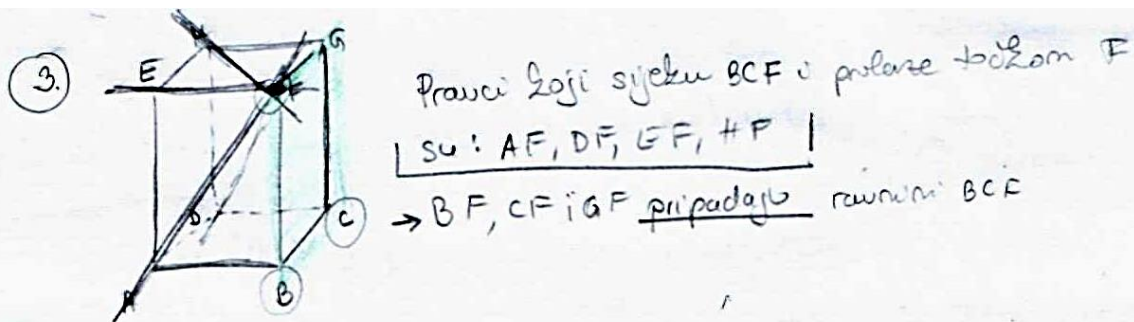 3.
G
E
F
Pravci koji sijeku BCF i prolaze točkom F
su: AF, DF, EF, HF
→ BF, CF i GF pripadaju ravnini BCF
D
C
A
B